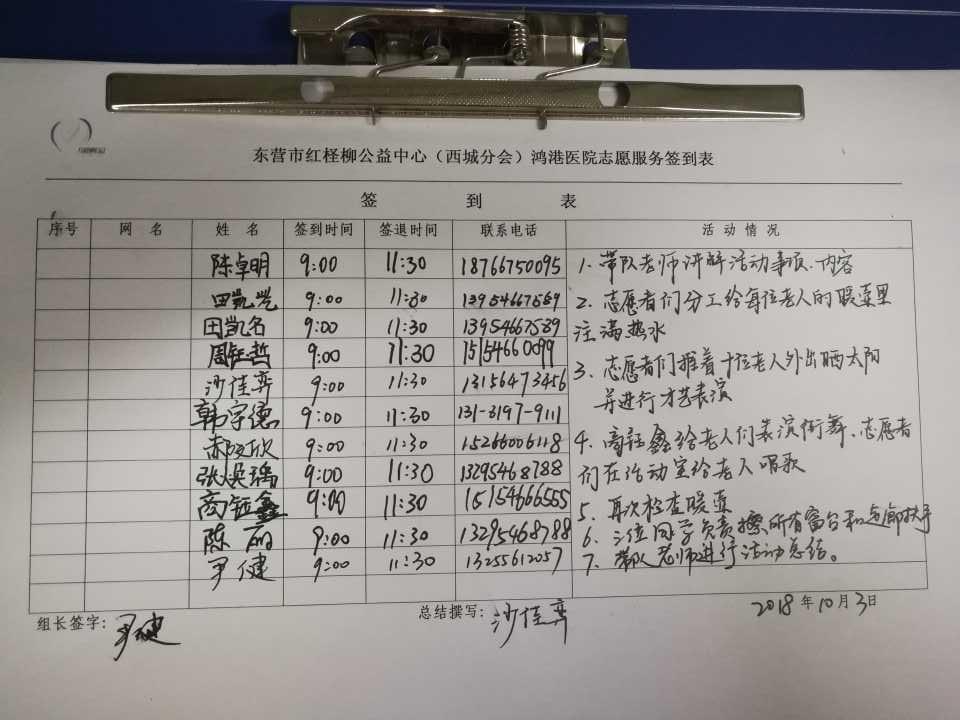 东营市红柽柳公益中心（西城分会）鸿港医院志愿服务签到表
签 到 表
序号 网 名 姓 名 签到时间 签退时间 联系电话 活 动 情 况
陈卓明 9:00 11:30 18766750095
田凯 9:00 11:30 13954667589
田凯名 9:00 11:30 13954667589
周钰哲 9:00 11:30 15154660099
沙佳弈 9:00 11:30 13156473456
韩宇德 9:00 11:30 131-3197-9111
郝欣 9:00 11:30 15266006118
张焕瑀 9:00 11:30 13295468788
高钰鑫 9:00 11:30 15154666555
陈丽 9:00 11:30 13295468788
尹健 9:00 11:30 13255612057
1、带队老师讲解活动事项、内容
2、志愿者们分工给每位老人的暖壶里
注满热水
3、志愿者们推着十位老人外出晒太阳
并进行才艺表演
4、高钰鑫给老人们表演街舞、志愿者
们在活动室给老人唱歌
5、再次检查暖壶
6、三位同学负责擦所有窗台和走廊扶手
7、带队老师进行活动总结。
组长签字：尹健
总结撰写：沙佳弈
2018年10月3日